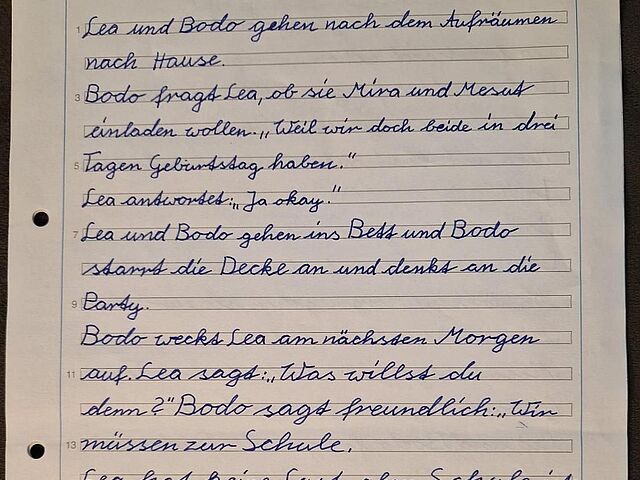 1 Lea und Bodo gehen nach dem Aufräumen
nach Hause.
3 Bodo fragt Lea, ob sie Mira und Mesut
einladen wollen. „Weil wir doch beide in drei
5 Tagen Geburtstag haben.“
Lea antwortet: „Ja okay.“
7 Lea und Bodo gehen ins Bett und Bodo
starrt die Decke an und denkt an die
9 Party.
Bodo weckt Lea am nächsten Morgen
11 auf. Lea sagt: „Was willst du
denn?“ Bodo sagt freundlich: „Wir
13 müssen zur Schule.
Lea hat keine Lust